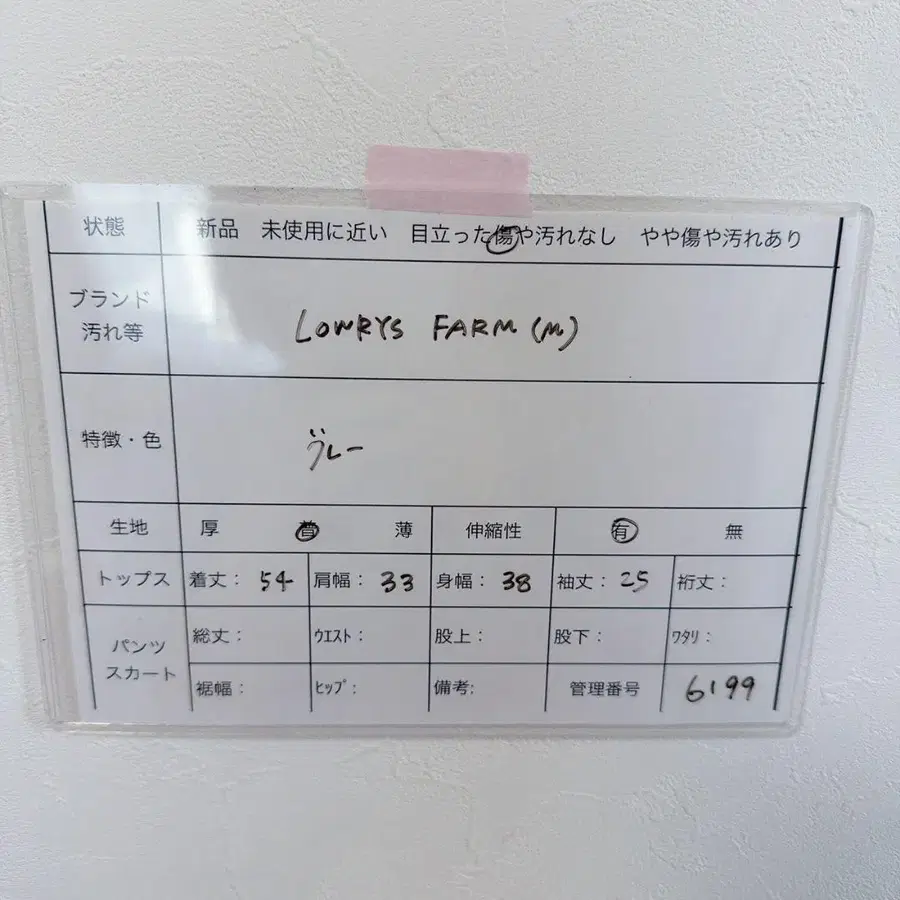 状態 新品 未使用に近い 目立った傷や汚れなし やや傷や汚れあり
ブランド
汚れ等
LOWRYS FARM (M)
特徴・色 グレー
生地 厚 普 薄 伸縮性 有 無
トップス 着丈： 54 肩幅： 33 身幅： 38 袖丈： 25 裄丈：
パンツ
スカート
総丈： ｳｴｽﾄ： 股上： 股下： ﾜﾀﾘ：
裾幅： ﾋｯﾌﾟ： 備考: 管理番号 6199